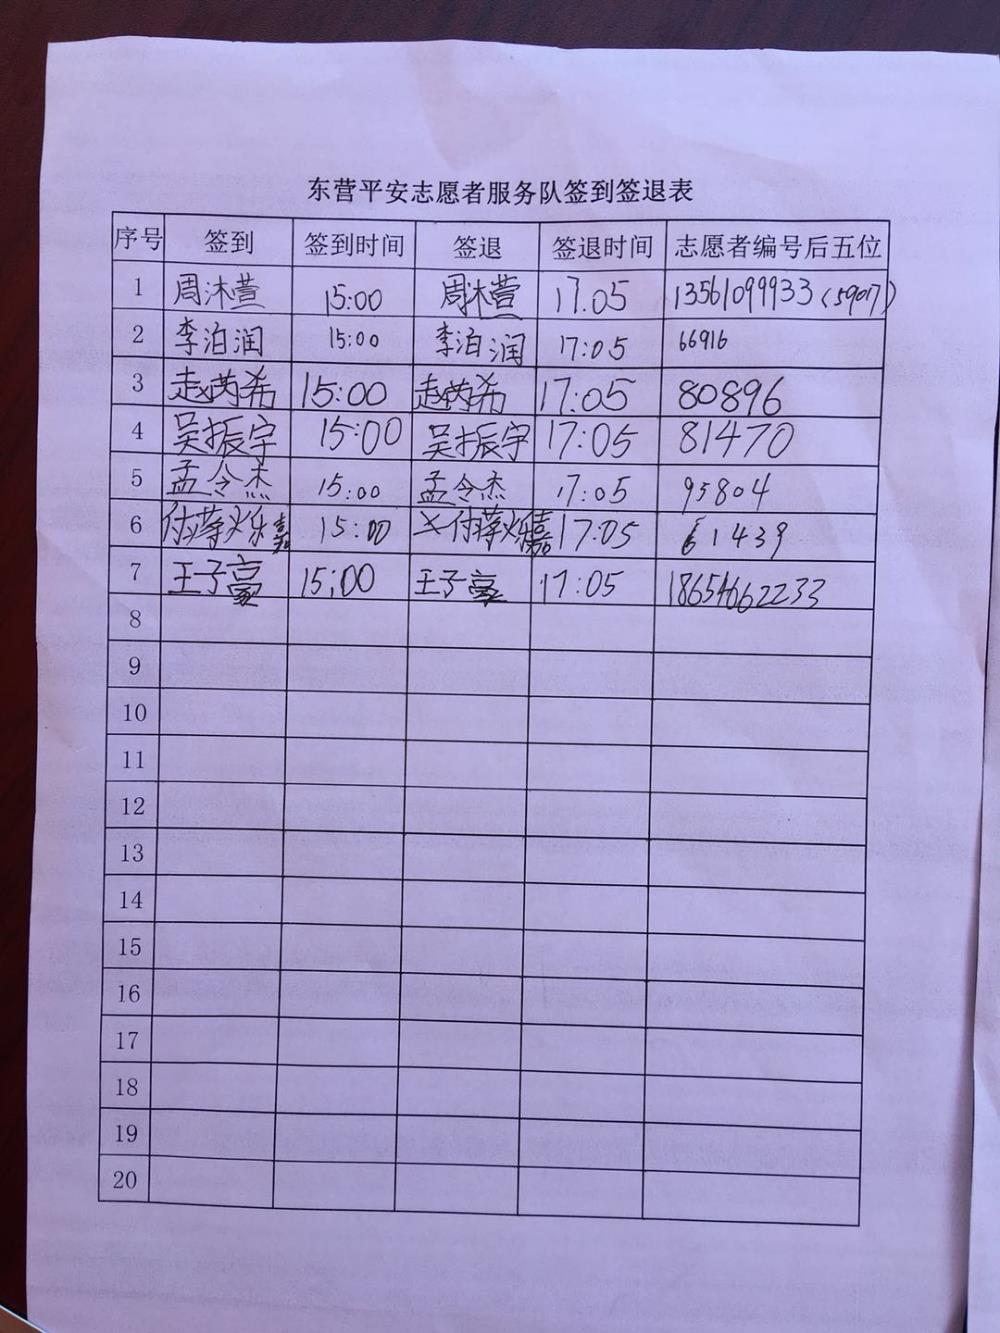 东营平安志愿者服务队签到签退表
序号 签到 签到时间 签退 签退时间 志愿者编号后五位
1 周沐萱 15:00 周沐萱 17.05 13561099933(5907)
2 李泊润 15:00 李泊润 17:05 66916
3 赵芮希 15:00 赵芮希 17:05 80896
4 吴振宇 15:00 吴振宇 17:05 81470
5 孟令杰 15:00 孟令杰 17:05 93804
6 15:00 17:05 61439
7 王子豪 15:00 王子豪 17:05 18654662233
8
9
10
11
12
13
14
15
16
17
18
19
20